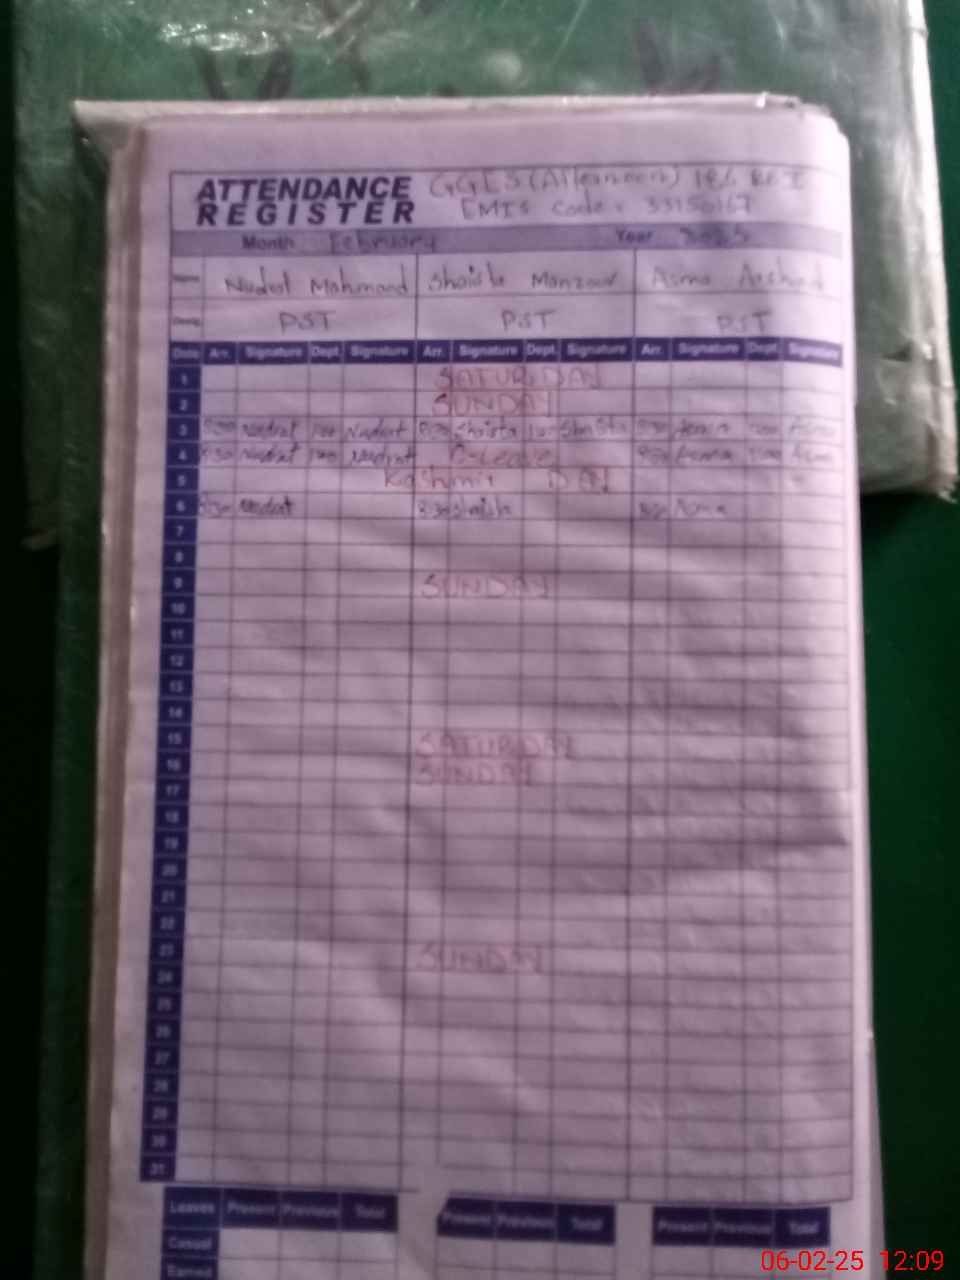 ATTENDANCE GGES (Afternoon)
REGISTER EMIS Code: 33150167
Month February Year 2025
Name Nudrat Mahmood Shaista Manzoor Asma Arshad
Desig PST PST PST
Date Arr. Signature Dept. Signature Arr. Signature Dept. Signature Arr. Signature Dept. Signature
1 SATURDAY
2 SUNDAY
3 8:30 Nudrat Nudrat 8:30 Shaista Shaista 8:30 Asma Asma
4 8:30 Nudrat Nudrat C-Leave 8:30 Asma Asma
5 Kashmir DAY
6 8:30 Nudrat 8:30 Shaista 8:30 Asma
7
8
9 SUNDAY
10
11
12
13
14
15 SATURDAY
16 SUNDAY
17
18
19
20
21
22
23 SUNDAY
24
25
26
27
28
29
30
31
Leaves Present Previous Total Present Previous Total Present Previous Total
Casual
Earned
06-02-25 12:09